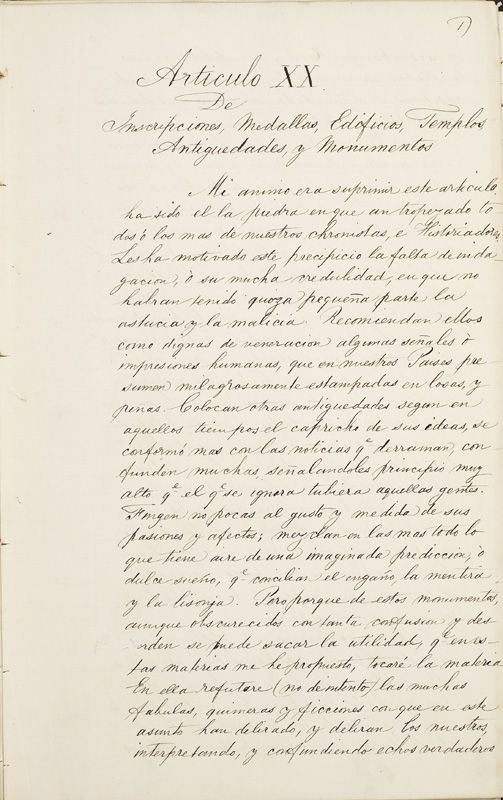 1)
Articulo XX.
De
Inscripciones, Medallas, Edificios, Templos,
Antiguedades, y Monumentos
Mi animo era suprimir este articulo,
ha sido el la piedra en que an tropezado to
dos ó los mas de nuestros chronistas, e Historiadores,
Les ha motivado este precipicio la falta de inda
gacion, ò su mucha credulidad, en que no
habran tenido quoza pequeña parte la
astucia y la malicia. Recomiendan ellos
como dignas de veneracion algunas señales ò
impresiones humanas, que en nuestros Paises pre-
sumen milagrosamente estampadas en losas, y
peñas. Colocan otras antiguedades segun en
aquellos tiempos el capricho de sus ideas, se
conformó mas con las noticias q.e derraman, con-
funden muchas, señalandoles principio muy
alto q.e el q.e se ignora tubiera aquellas gentes.
Fingen no pocas al gusto y medida de sus
pasiones y afectos; mezclan en las mas todo lo
que tiene aire de una imaginada prediccion, ò
dulce sueño, q.e concilian el engaño, la mentira
y la lisonja. Pero porque de estos monumentos,
aunque obscurecidos con tanta confusion y des-
orden se puede sacar la utilidad, q.e en es-
tas materias me he propuesto, tocaré la materia
En ella refutare (no de intento) las muchas
fabulas, quimeras y ficciones con que en este
asunto han delirado, y deliran los nuestros,
interpretando, y confundiendo echos verdaderos